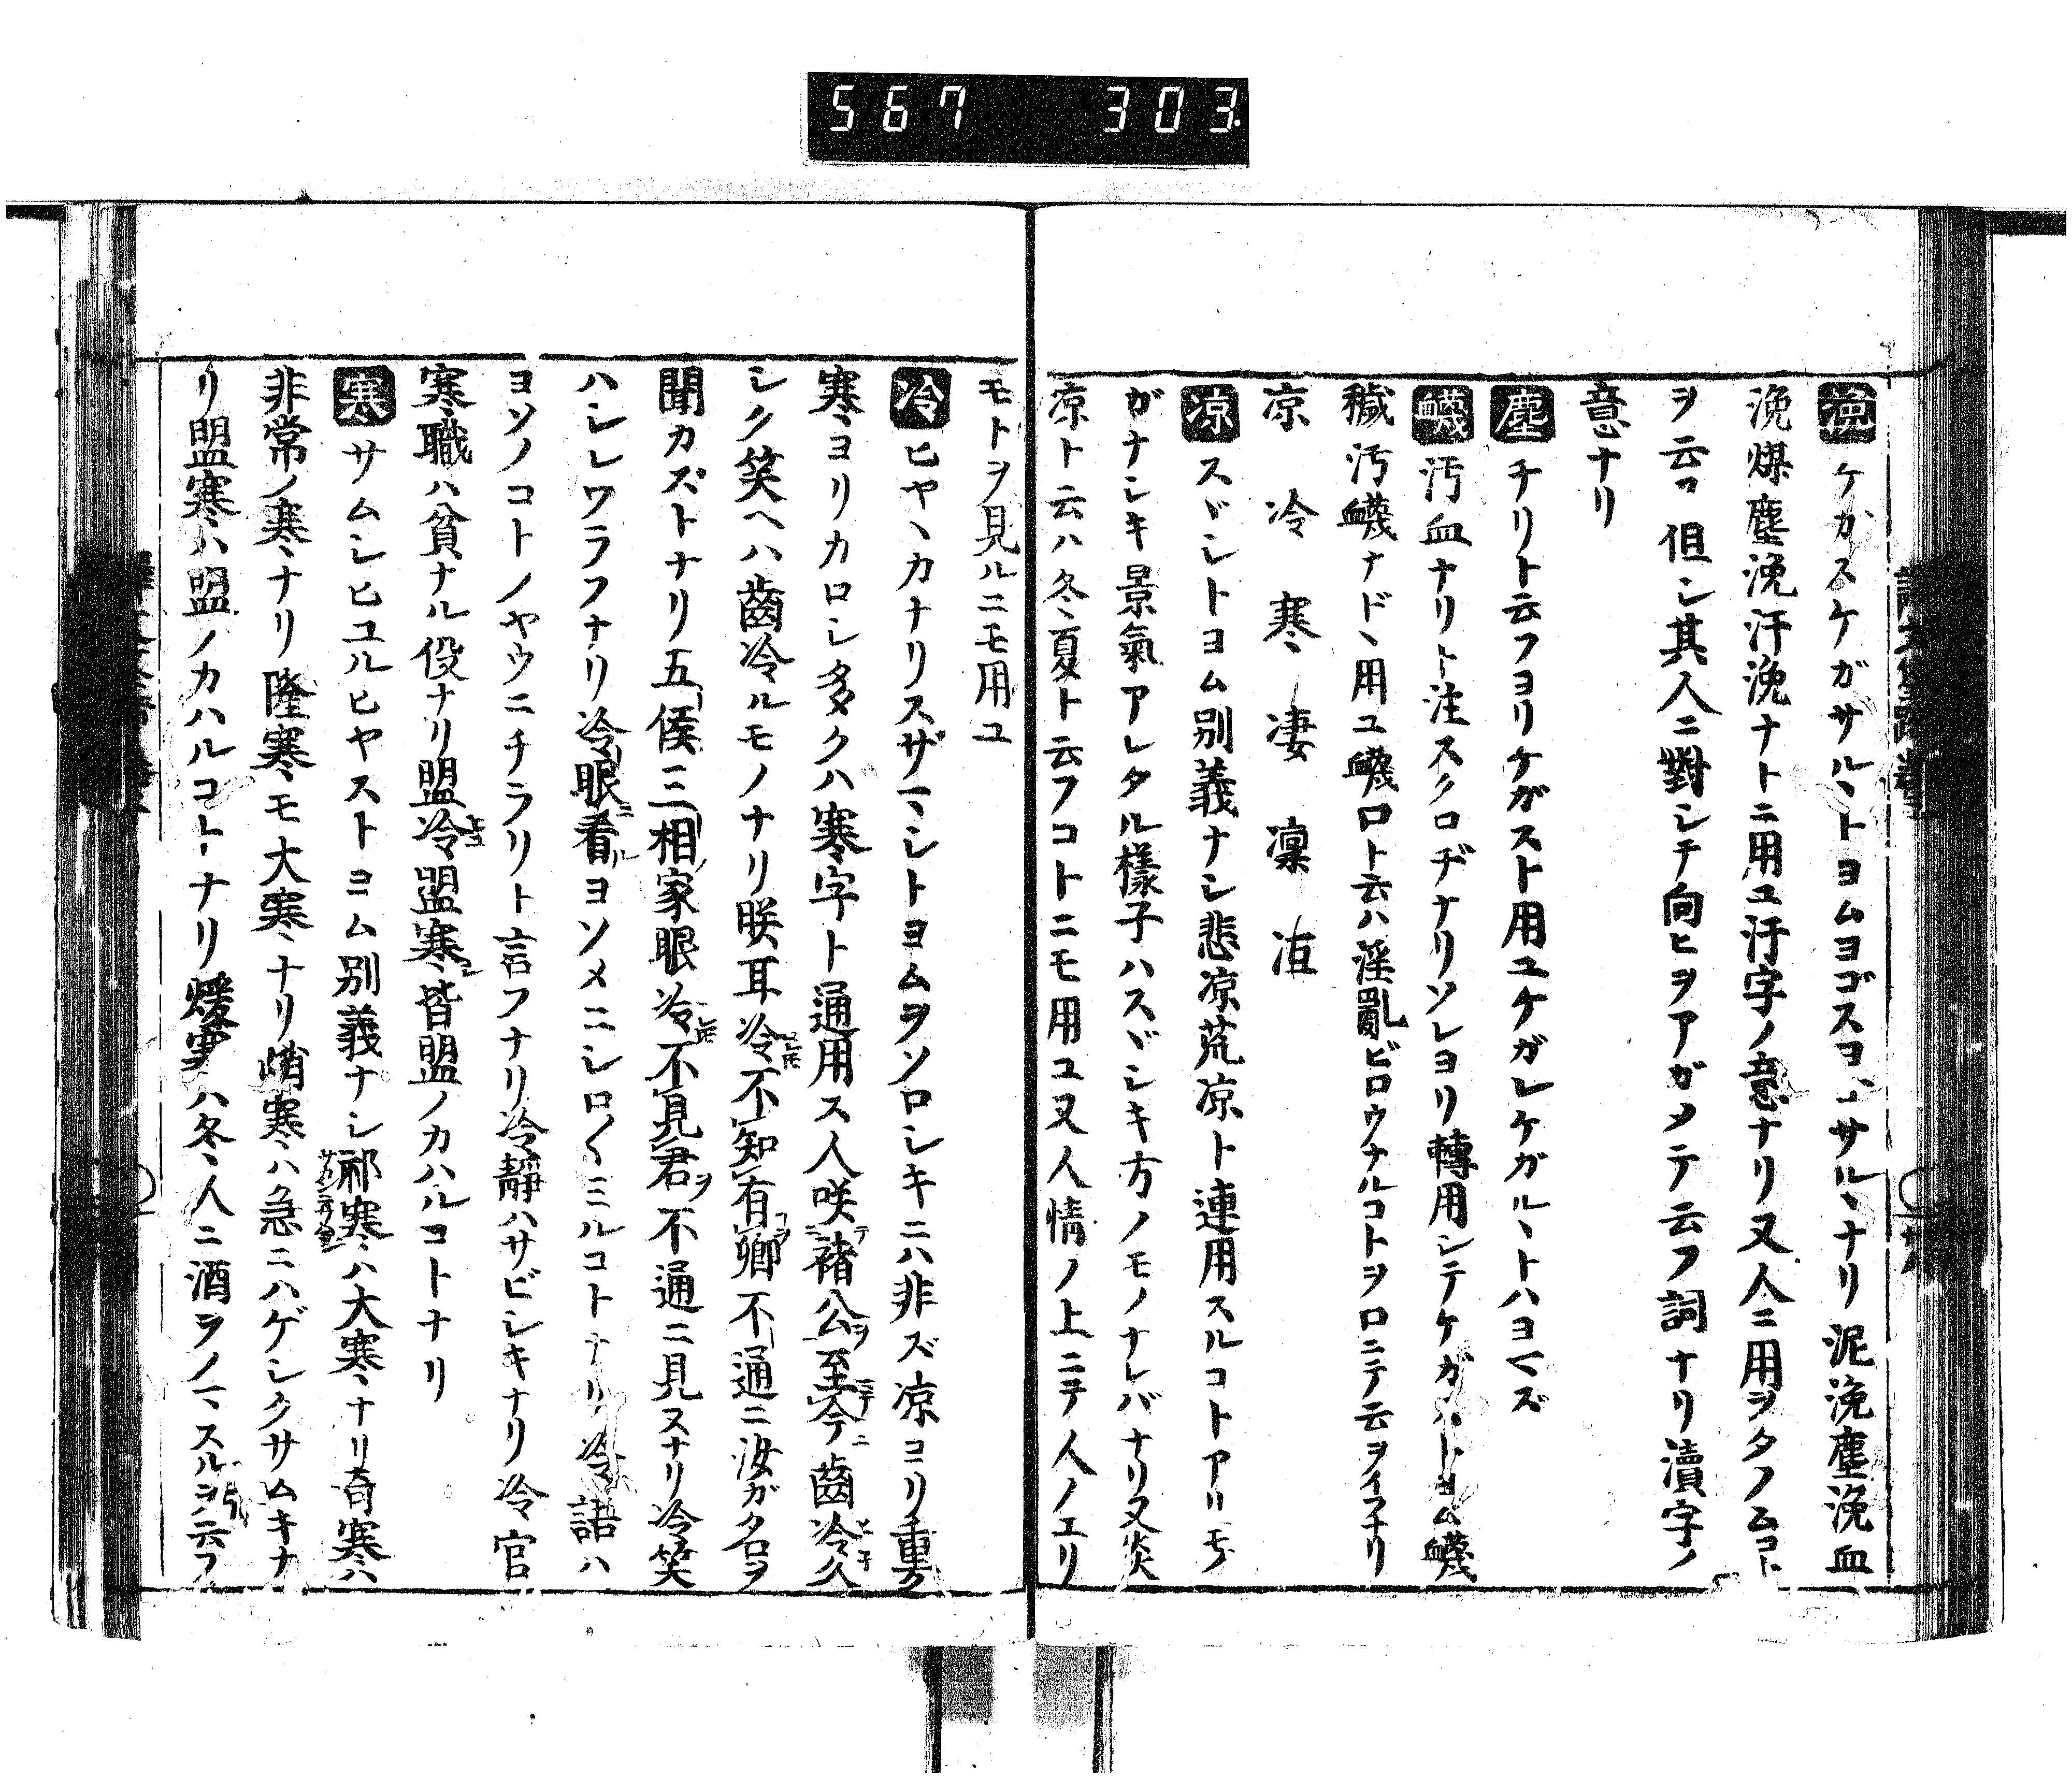 567 303
浼 ケガスケガサルヽトヨムヨゴスヨゴサルヽナリ泥浼塵浼血
浼爍塵浼汗浼ナトニ用ユ汙字ノ意ナリ又人ニ用ヲタノムコト
ヲ云フ但シ其人ニ對シテ向ヒヲアガメテ云フ詞ナリ瀆字ノ
意ナリ
塵 チリト云フヨリケガスト用ユケガレケガルヽトハヨマズ
衊 汚血ナリト注スクロヂナリソレヨリ轉用シテケガストヨム衊
穢汚衊ナドヽ用ユ衊口ト云ハ淫亂ビロウナルコトヲ口ニテ云ヲイフナリ
凉 冷 寒 凄 凜 冱
凉 スヾシトヨム別義ナシ悲凉荒凉ト連用スルコトアリモノ
ガナシキ景氣アレタル樣子ハスヾシキ方ノモノナレバナリ又炎
凉ト云ハ冬夏ト云フコトニモ用ユ又人情ノ上ニテ人ノエリ
モトヲ見ルニモ用ユ
冷 ヒヤヽカナリスザマシトヨムヲソロシキニハ非ズ凉ヨリ重ク
寒ヨリカロシ多クハ寒字ト通用ス人咲褚公至今齒冷久
シク笑ヘハ齒冷ルモノナリ咲耳冷不知有卿不通ニ汝ガ名ヲ
聞カズトナリ五侯三相家眼冷不見君不通ニ見スナリ冷笑
ハシレワラフナリ冷眼看ヨソメニシロ〱ミルコトナリ冷語ハ
ヨソノコトノヤウニチラリト言フナリ冷靜ハサビシキナリ冷官
寒職ハ貧ナル役ナリ盟冷盟寒皆盟ノカハルコトナリ
寒 サムシヒユルヒヤストヨム別義ナシ祁寒ハ大寒ナリ奇寒ハ
非常ノ寒ナリ隆寒モ大寒ナリ峭寒ハ急ニハゲシクサムキナ
リ盟寒ハ盟ノカハルコトナリ煖寒ハ冬人ニ酒ヲノマスルヲ云フ